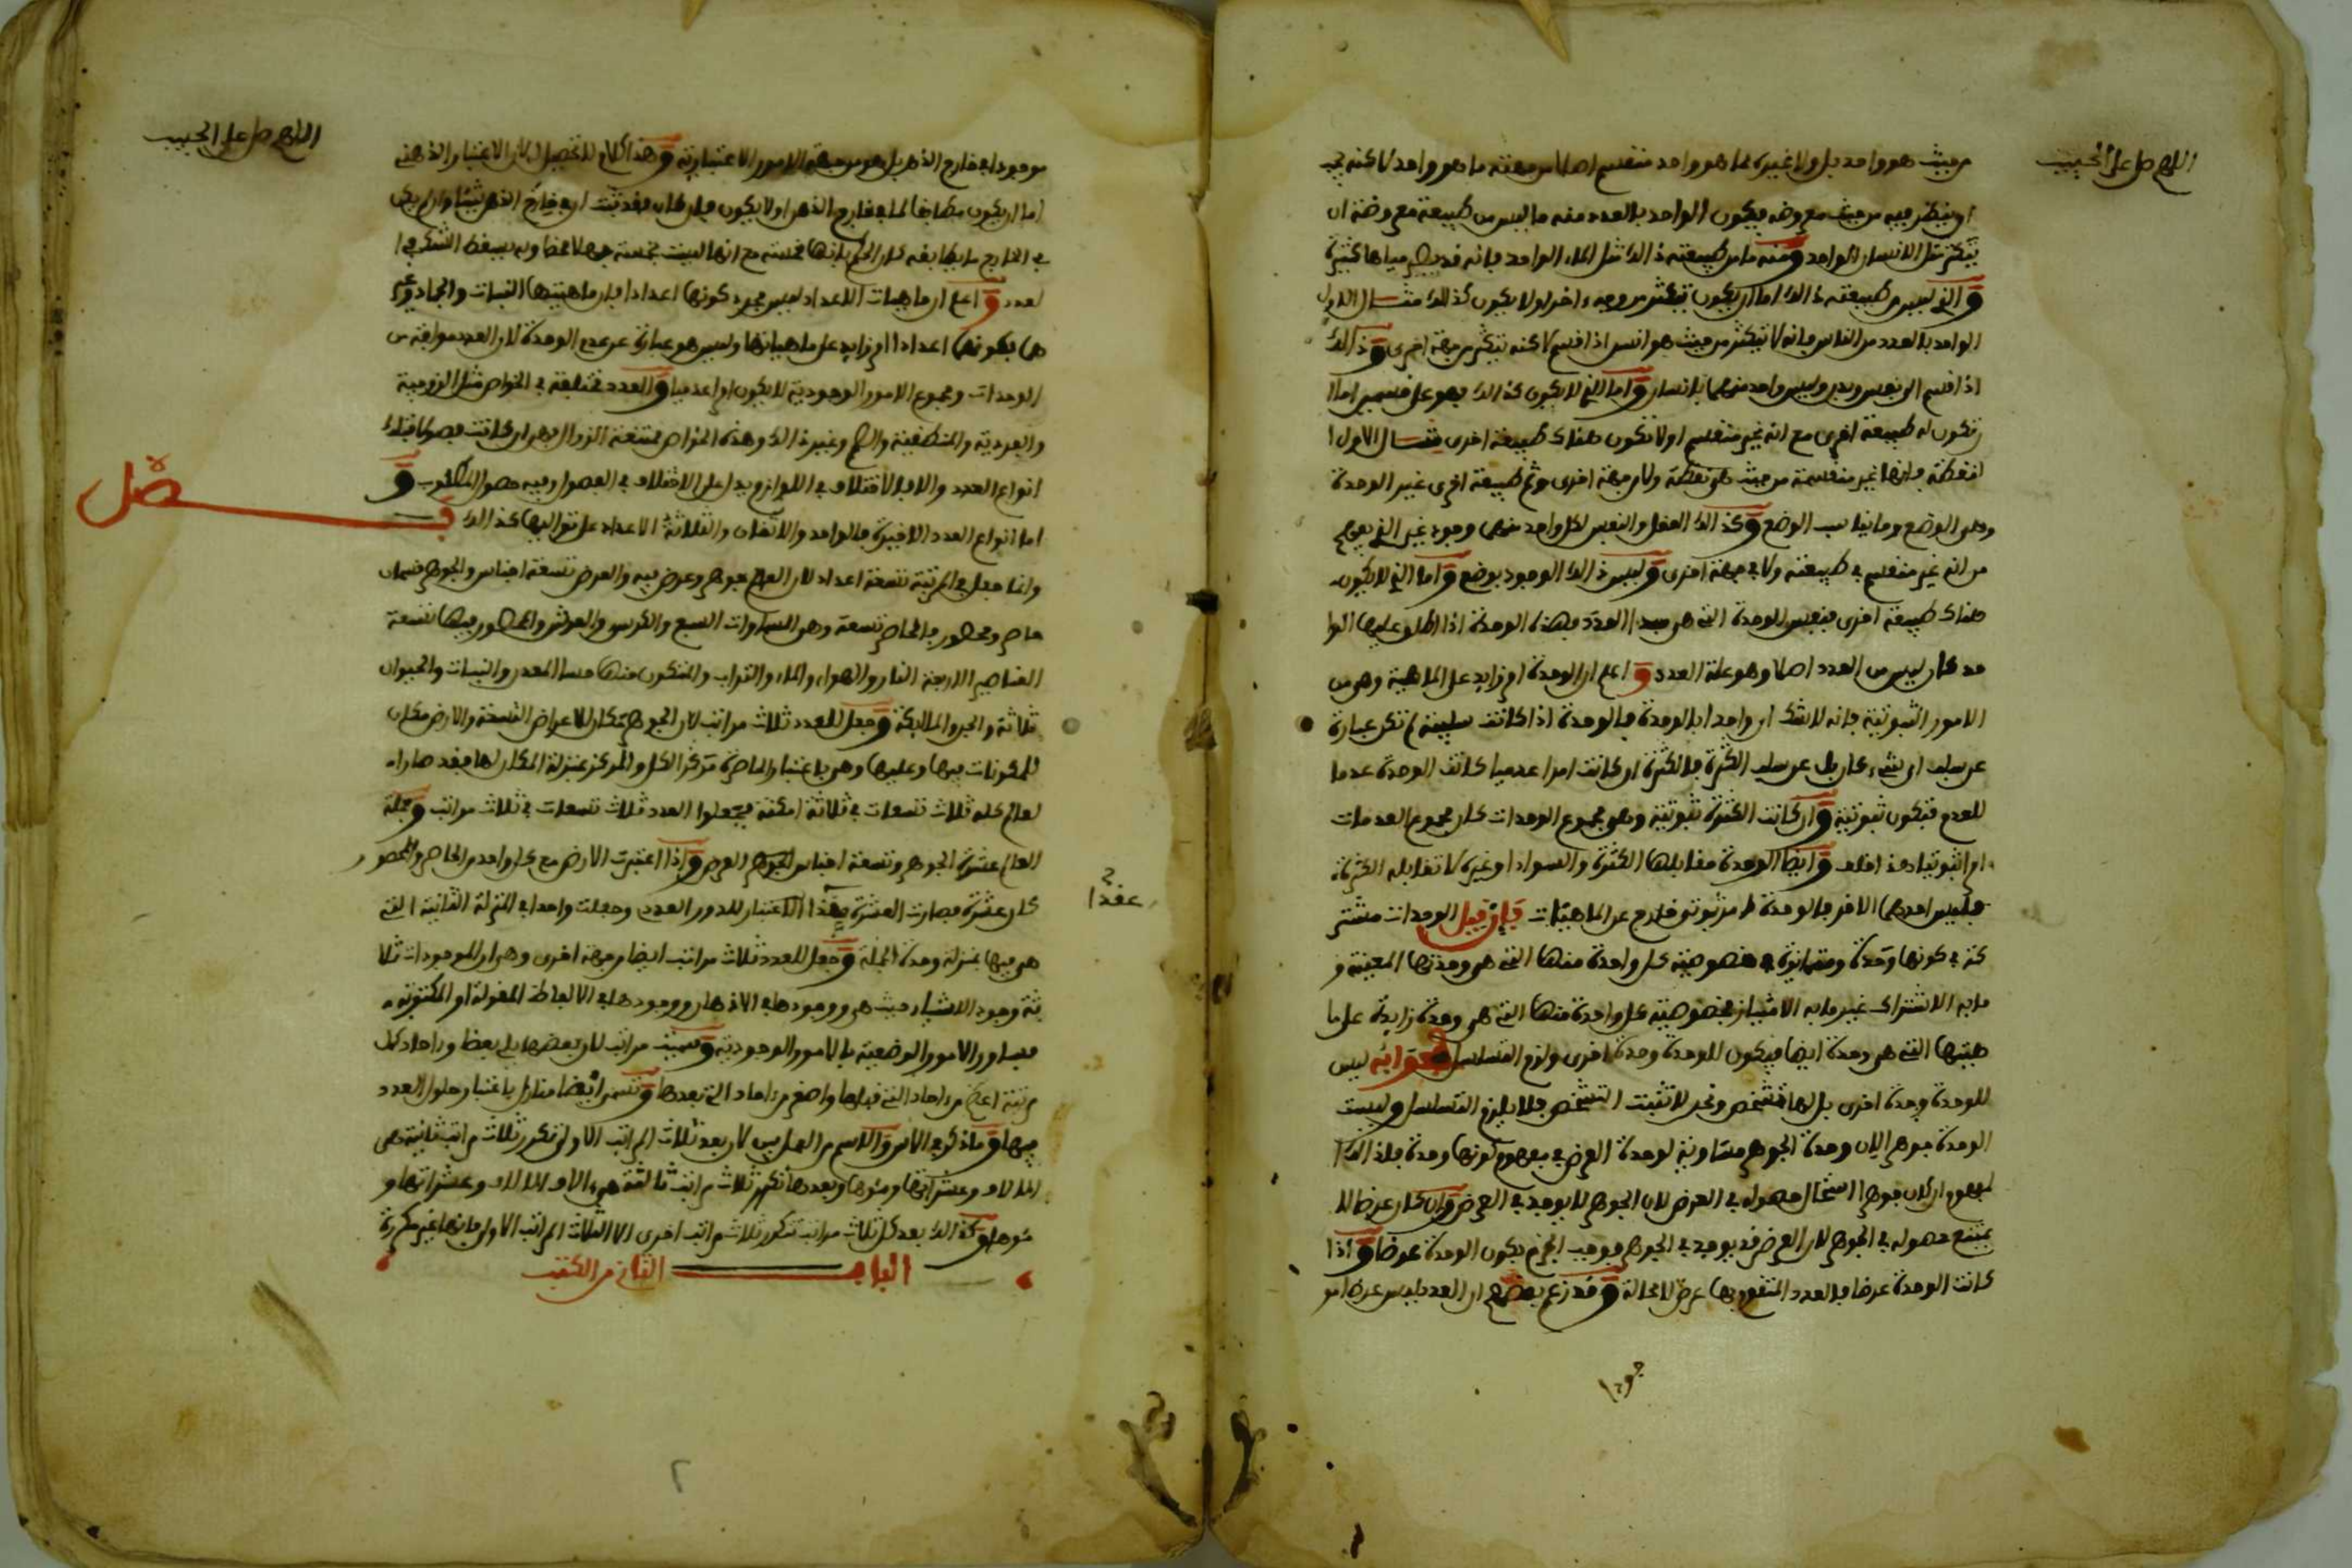 اللهم صل على الحبيب
من حيث هو واحد بل ولا غيره مما هو واحد منقسم اصلا من جهة ما هو واحد لاكنه يجب
ان ينظر فيه من حيث معروضه فيكون الواحد بالعدد منه ما ليس من طبيعة معروضة ان
يتكثر مثل الانسان الواحد ومنه ما من طبيعته ذالك مثل الماء الواحد فانه قد يصير مياها كثيرة
والذي ليس من طبيعته ذالك اما ان يكون يتكثر من وجه ءاخر اولا يكون كذالك مثال الاول
الواحد بالعدد من الناس فانه لا يتكثر من حيث هو انس اذا قسم لاكنه يتكثر من جهة اخرى وذالك
اذا قسم الى نفس وبدن وليس واحد منهما بانسان واما الذي لا يكون كذالك فهو على قسمين اما ا
ن تكون له طبيعة اخرى مع انه غير منقسم او لا تكون هناك طبيعة اخرى مثال الاول ا
لنقطة فانها غير منقسمة من حيث هي نقطة ولا من جهة اخرى وثم طبيعة اخرى غير الوحدة
وهي الوضع وما يناسب الوضع وكذالك العقل والنفس لكل واحد منهما وجود غير الذي يفهم
من انه غير منقسم في طبيعته ولا في جهة اخرى وليس ذالك الوجود بوضع واما الذي لا يكون
هناك طبيعة اخرى فنفس الوحدة التي هي مبدا العدد فهذه الوحدة اذا اطلق عليها الوا
حد كان ليس من العدد اصلا وهو علة العدد واعلم ان الوحدة امر زايد على الماهية وهي من
الامور الثبوتية فانه لا شك ان واحدا بالوحدة فالوحدة اذا كانت سلبية لم تكن عبارة
عن سلب اي شيء كان بل عن سلب الكثرة فالكثرة ان كانت امرا عدميا كانت الوحدة عدما
للعدم فتكون ثبوتية وان كانت الكثرة ثبوتية وهي مجموع الوحدات كان مجموع العدمات
امرا ثبوتيا هذا خلف وايضا الوحدة مقابلها الكثرة والسواد او غيره لا تقابله الكثرة
فليس احدهما الاخر فالوحدة امر ثبوتي خارج عن الماهيات فان قيل الوحدات مشتر
كة في كونها وحدة ومتمايزة في خصوصية كل واحدة منها التي هي وحدتها المعينة و
ما به الاشتراك غير ما به الامتياز فخصوصية كل واحدة منها التي هي وحدة زايدة على ما
هيتها التي هي وحدة ايضا فيكون للوحدة وحدة اخرى ولزم التسلسل فجوابه ليس
للوحدة وحدة اخرى بل لها تشخص ونحن لا نثبت التشخص فلا يلزم التسلسل وليست
الوحدة جوهرا لان وحدة الجوهر مساوية لوحدة العرض في مفهوم كونها وحدة فلذالك ا
لمفهوم ان كان جوهرا استحال حصوله في العرض لان الجوهر لا يوجد في العرض وان كان عرضا لا
يمتنع حصوله في الجوهر لان العرض قد يوجد في الجوهر فوجب الجزم بكون الوحدة عرضا واذا
كانت الوحدة عرضا فالعدد المتقوم بها عرض لا محالة وقد زعم بعضهم ان العدد ليس عرضا مو
جودا
اللهم صل على الحبيب
موجودا في خارج الذهن بل هو من جهة الامور الاعتبارية وهذا كلام لا تحصيل له لان الاعتبار الذهني
اما ان يكون مطابقا لما في خارج الذهن او لا يكون فان كان فقد ثبت ان في خارج الذهن شيئا وان لم يكن
في الخارج ما يطابقه كان الحكم بانها خمسة مع انها ليست بخمسة جهلا محضا وبه يسقط التشكيك في ا
لعدد واعلم ان ماهيات الاعداد ليس مجرد كونها اعدادا فان ماهيتها النبات والجماد وغير
هما بكونها اعدادا امر زايد على ماهياتها وليس هو عبارة عن عدم الوحدة لان العدد مولف من
الوحدات ومجموع الامور الوجودية لا يكون امرا عدميا والعدد مختلفة في الخواص مثل الزوجية
والفردية والمنطقية والصم وغير ذالك وهذه الخواص ممتنعة الزوال فهي ان كانت فصولا فتلك
انواع العدد والا فالاختلاف في اللوازم يدل على الاختلاف في الفصول وفيه حصول المطلوب و
فصل
اما انواع العدد الاخيرة فالواحد والاثنان والثلاثة الاعداد على تواليها كذالك
وانما جعل في المرتبة تسعة اعداد لان العالم جوهر وعرض فيه والعرض تسعة اجناس والجوهر قسمان
حاصر ومحصور فالحاصر تسعة وهي السماوات السبع والكرسي والعرش والمحصور فيها تسعة
العناصر الاربعة النار والهواء والماء والتراب والمتكون منها هنا المعدن والنبات والحيوان
ثلاثة والجن والملايكة وجعل للعدد ثلاث مراتب لان الجوهر مكان للاعراض التسعة والارض مكان
للمكونات فيها وعليها وهي باعتبار الحاصرة مركز الكل والمركز بمنزلة المكان لها فقد صار ا
لعالم كله ثلاث تسعات في ثلاثة امكنة فجعلوا العدد ثلاث تسعات في ثلاث مراتب وجملة
العالم عشرة الجوهر وتسعة اجناس الجوهر العرض واذا اعتبرت الارض مع كل واحد من الحاصر والمحصور
كان عشرة فصارت العشرة بهذا الاعتبار للدور العددي وجعلت واحدا في المنزلة الثانية التي
عقدا
هي فيها بمنزلة وحدة الجملة وجعل للعدد ثلاث مراتب ايضا من جهة اخرى وهي ان للموجودات ثلا
ثة وجود الاشياء حيث هي ووجودها في الاذهان ووجودها في الالفاظ المقولة او المكتوبة
فساوى الامور الوضعية بالامور الوجودية وسميت مراتب لان بعضها يلي بعظا وءاحاد كل
مرتبة اعظم من ءاحاد التي قبلها واصغر من ءاحاد التي بعدها وتسمى ايضا منازل باعتبار حلول العدد
فيها وما ذكر في الاس والاسم من الملبس لان بعد ثلاث المراتب الاولى تكرر ثلاث مراتب ثانية هي
الالاف وعشراتها ومئوها وبعدها تكرر ثلاث مراتب ثالثة هي ءالاف الالاف وعشراتها و
مئوها وكذالك بعد كل ثلاث مراتب تتكرر ثلاث مراتب اخرى الا الثلاث المراتب الاولى فانها غير مكررة
الباب الثاني من الكتب
٢